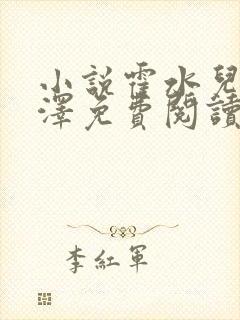 小說霍水兒
澤免費閱讀
李紅軍